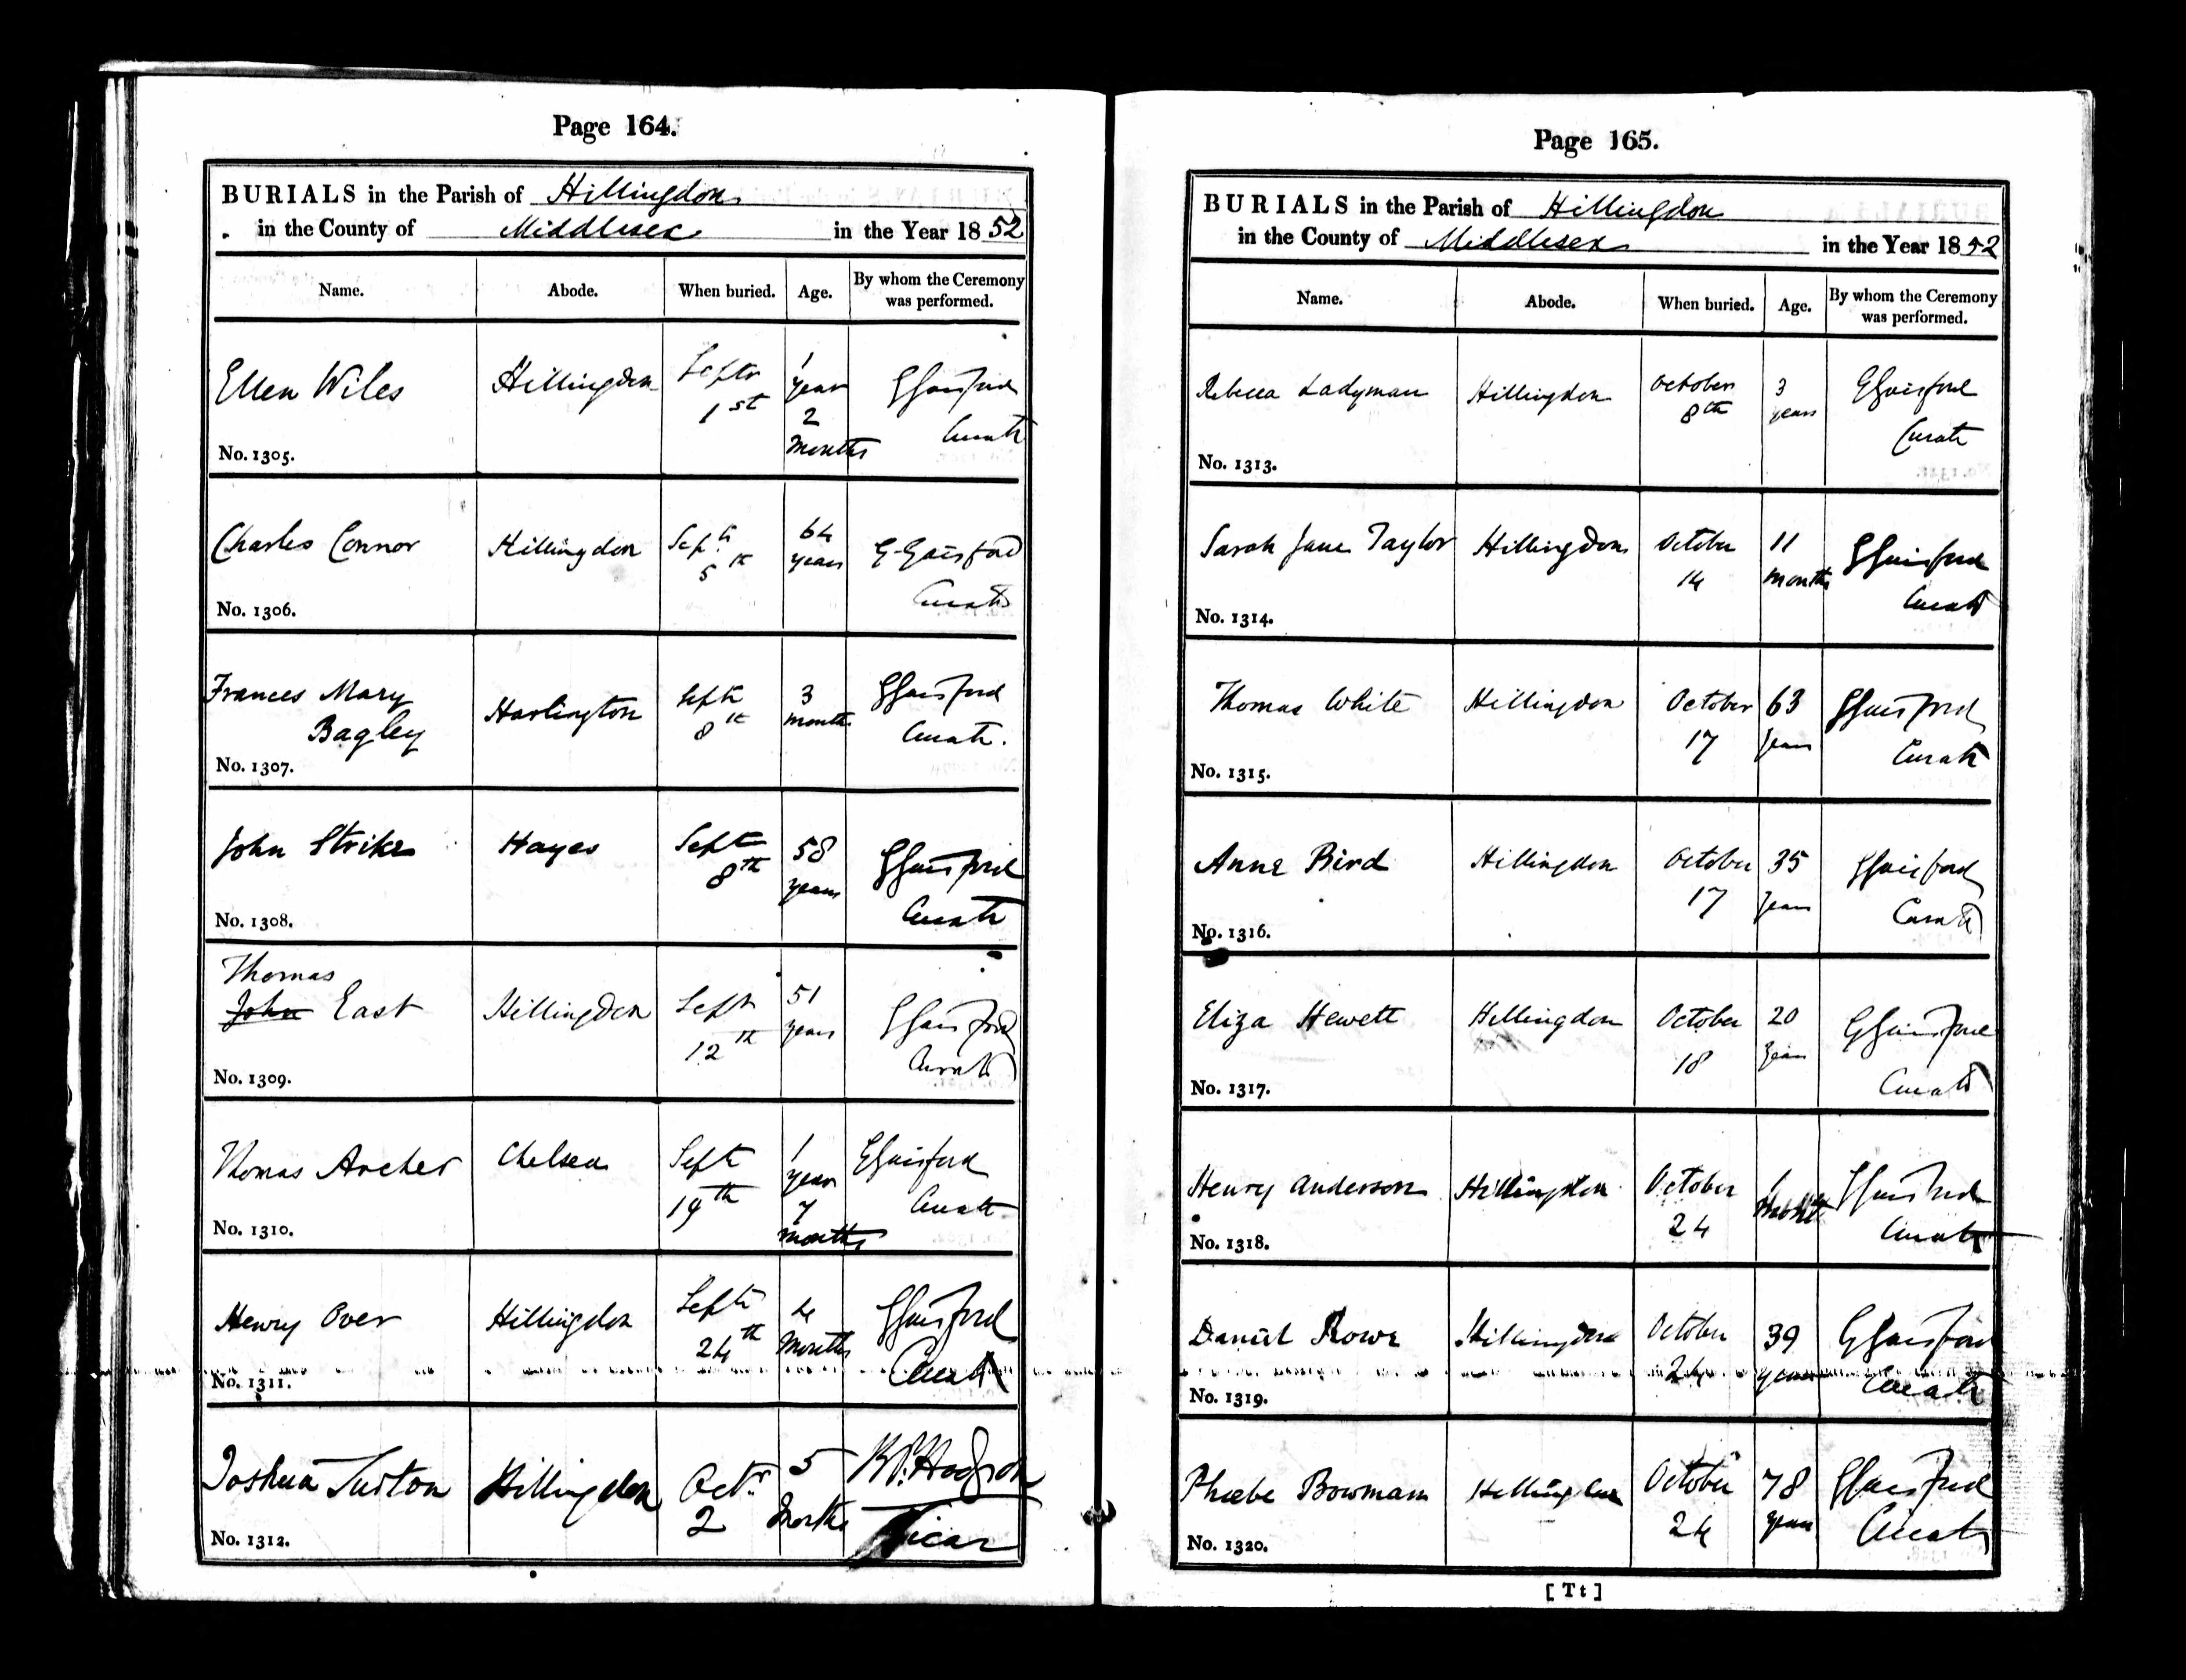 Page 164.
BURIALS in the Parish of Hillingdon
in the County of Middlesex in the Year 1852
Name. Abode. When buried. Age. By whom the Ceremony was performed.
Ellen Wiles Hillingdon Septr 1st 1 year 2 Months G Gaisford Curate
No. 1305.
Charles Connor Hillingdon Septr 5th 64 years G Gaisford Curate
No. 1306.
Frances Mary Bagley Harlington Septr 8th 3 months G Gaisford Curate.
No. 1307.
John Strike Hayes Septr 8th 58 years G Gaisford Curate
No. 1308.
Thomas
John East Hillingdon Septr 12th 51 years G Gaisford Curate
No. 1309.
Thomas Archer Chelsea Septr 19th 1 year 7 months G Gaisford Curate
No. 1310.
Henry Over Hillingdon Septr 24th 4 Months G Gaisford Curate
No. 1311.
Joshua Turton Hillingdon Octr. 2 5 Months Hodgson Vicar
No. 1312.
Page 165.
BURIALS in the Parish of Hillingdon
in the County of Middlesex in the Year 1852
Name. Abode. When buried. Age. By whom the Ceremony was performed.
Rebecca Ladyman Hillingdon October 8th 3 years G Gaisford Curate
No. 1313.
Sarah Jane Taylor Hillingdon October 14 11 months G Gaisford Curate
No. 1314.
Thomas White Hillingdon October 17 63 Years G Gaisford Curate
No. 1315.
Anne Bird Hillingdon October 17 35 Years G Gaisford Curate
No. 1316.
Eliza Hewett Hillingdon October 18 20 Years G Gaisford Curate
No. 1317.
Henry Anderson Hillingdon October 24 1 G Gaisford Curate
No. 1318.
Daniel Rowe Hillingdon October 24 39 years G Gaisford Curate
No. 1319.
Phoebe Bowman Hillingdon October 24 78 years G Gaisford Curate
No. 1320.
[Tt]